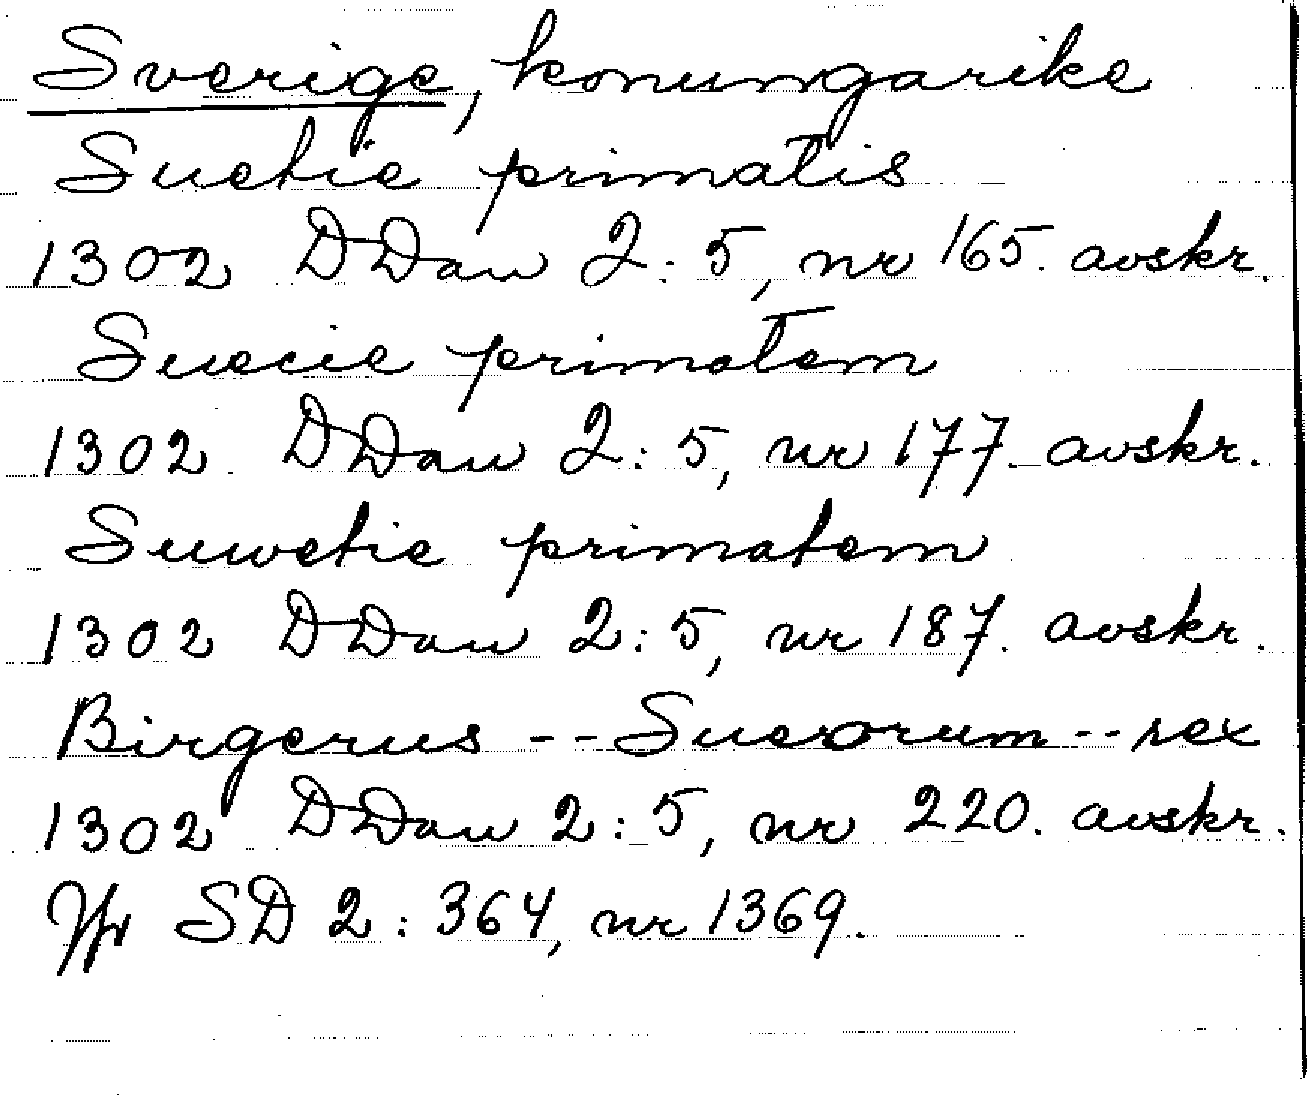 Sverige, konungarike
Suetie primatis
1302 DDan 2:5, nr 165. avskr.
Suecie primatem
1302. DDan 2:5, nr 177. avskr.
Suwetie primatem
1302 DDan 2:5, nr 187. avskr.
Birgerus -- Sueorum -- rex
1302 DDan 2:5, nr 220. avskr.
Jfr SD 2:364, nr 1369.